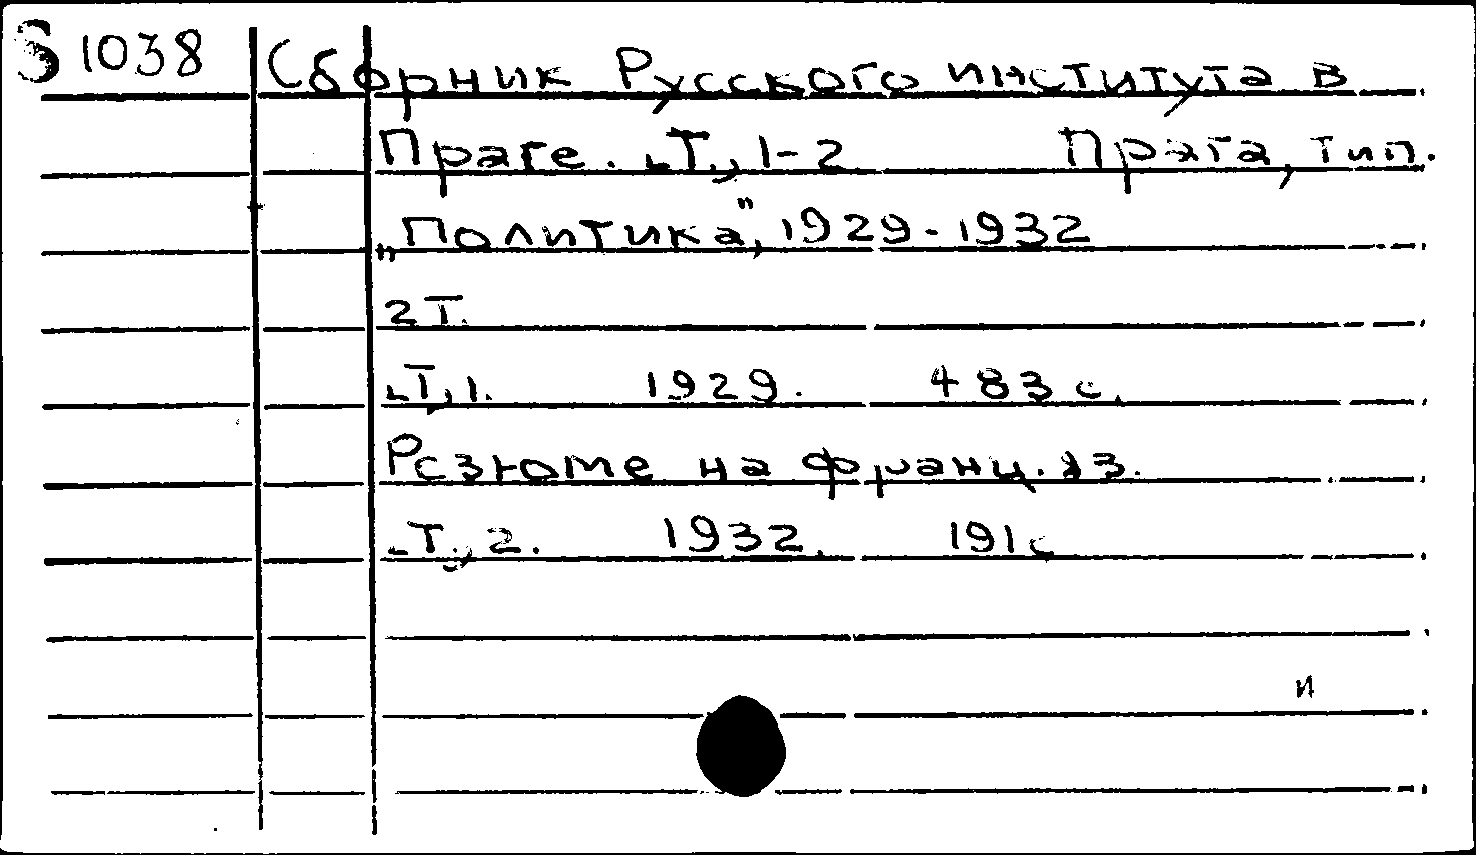 S 1038 Сборник Русского института в
Праге. „Т.„ 1-2 Прага, тип.
„Политика", 1929-1932
2 Т.
„Т„ 1. 1929. 483 с.
Резюме на франц. яз.
„Т.„ 2. 1932. 191 с
и